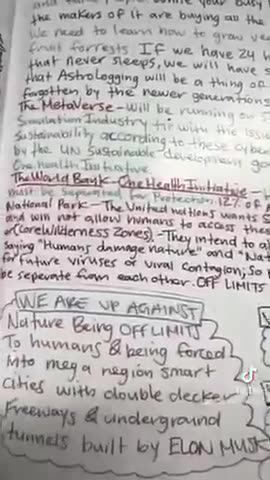 the makers of it are buying all the
We need to learn how to grow ve
fruit forrests. IF we have 24 h
that never sleeps, we will have s
that Astrologging will be a thing of
forgotten by the newer generations
The MetaVerse - will be running on S
Simulation Industry tip with the issu
Sustainability according to these cyber
by the UN Sustainable development go
One health Initiative
The World Bank - One Health Initiative -
must be Seperated for Protection. 12% of
National Park - The United nations wants S
and will not allow humans to access thes
or (Core Wilderness Zones). - They intend to al
Saying "Humans damage nature" and "Nat
for future viruses or viral Contagion, So
be seperate from each other. OFF LIMITS
WE ARE UP AGAINST
Nature Being OFF LIMITS
To humans & being forced
Into mega region smart
Cities with double decker
Freeways & underground
tunnels built by ELON MUSK